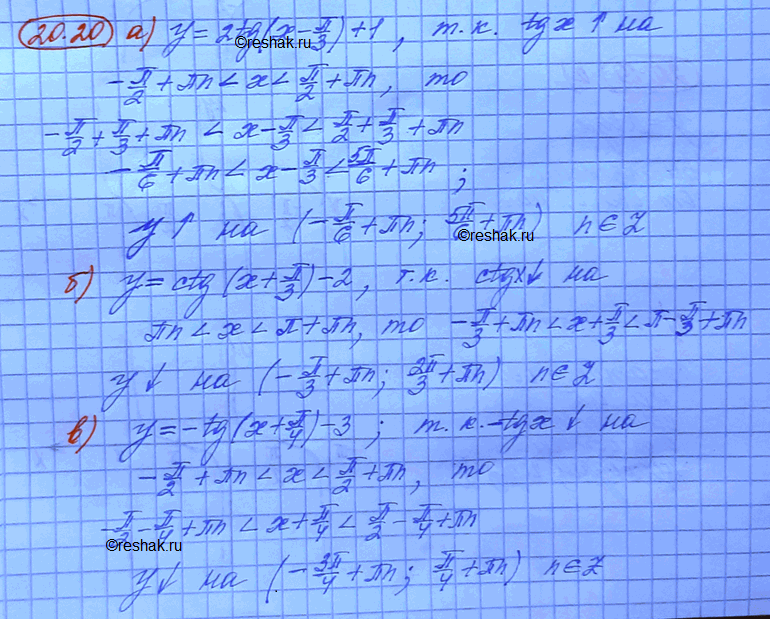 20.20 а) y = 2tg(x - π/3) + 1, т.к. tgx ↑ на
©reshak.ru
-π/2 + πn < x < π/2 + πn, то
-π/2 + π/3 + πn < x - π/3 < π/2 + π/3 + πn
-π/6 + πn < x - π/3 < 5π/6 + πn;
y ↑ на (-π/6 + πn; 5π/6 + πn) n ∈ Z
©reshak.ru
б) y = ctg(x + π/3) - 2, т.к. ctgx ↓ на
πn < x < π + πn, то -π/3 + πn < x + π/3 < π - π/3 + πn
y ↓ на (-π/3 + πn; 2π/3 + πn) n ∈ Z
в) y = -tg(x + π/4) - 3; т.к. -tgx ↓ на
-π/2 + πn < x < π/2 + πn, то
-π/2 - π/4 + πn < x + π/4 < π/2 - π/4 + πn
©reshak.ru
y ↓ на (-3π/4 + πn; π/4 + πn) n ∈ Z